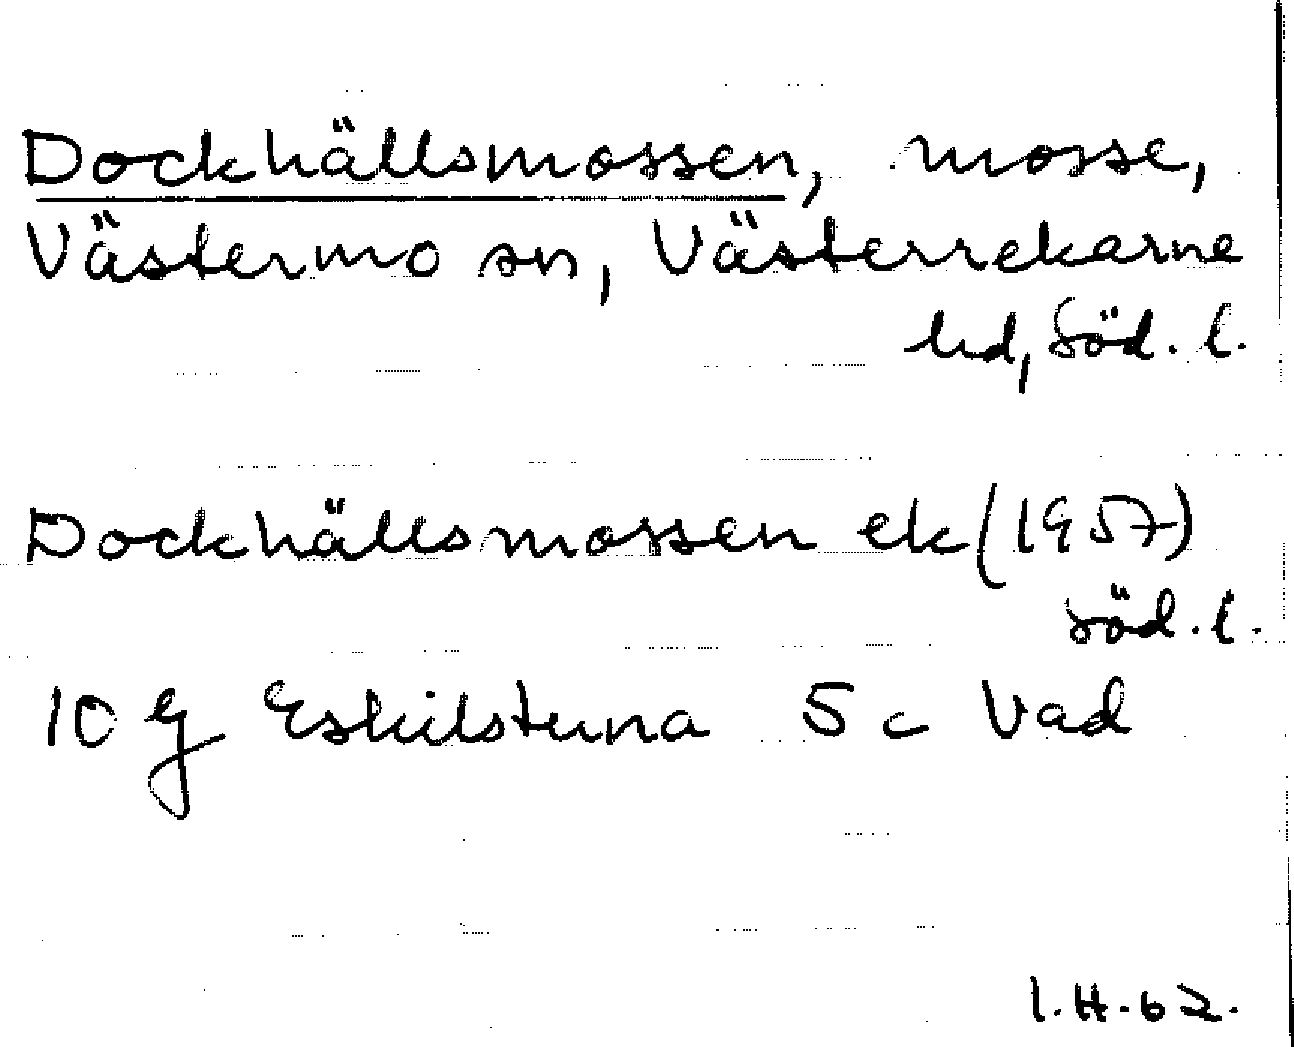 Dockhällsmossen, mosse,
Västermo sn, Västerrekarne
hd, Söd. l.
Dockhällsmossen ek (1957)
Söd. l.
10 g Eskilstuna 5 c Vad
I.H.62.